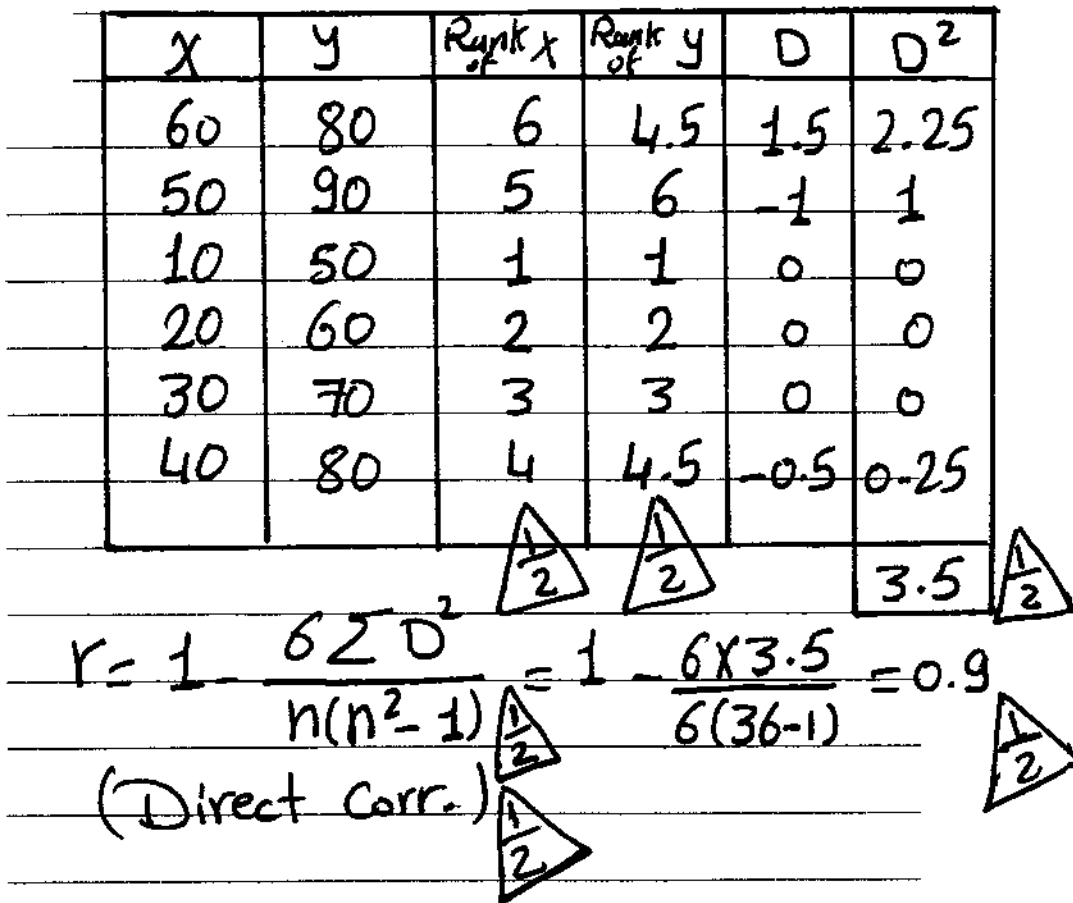 X y Rank of X Rank of y D D²
60 80 6 4.5 1.5 2.25
50 90 5 6 -1 1
10 50 1 1 0 0
20 60 2 2 0 0
30 70 3 3 0 0
40 80 4 4.5 -0.5 0.25
1/2 1/2 3.5 1/2
r = 1 - 6ΣD²/n(n²-1) 1/2 = 1 - 6×3.5/6(36-1) = 0.9 1/2
(Direct Corr.) 1/2